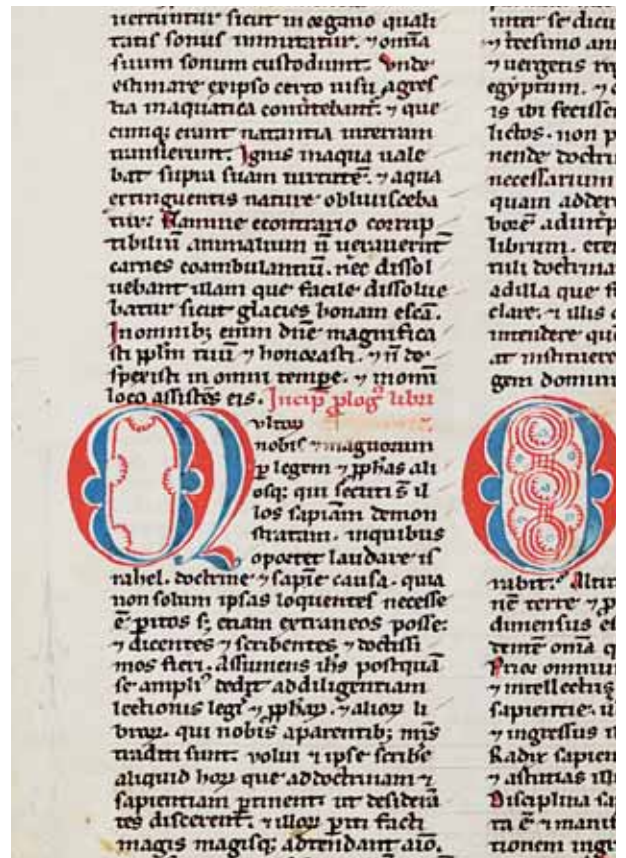 uertuntur sicut in organo quali
tatis sonus inmutatur. ⁊ om̄ia
suum sonum custodiunt. Vnde
estimare ex ipso certo uisu. agres
tia in aquatica conuertebant̄. ⁊ que
cumq; erant natantia in terram
transierunt. Ignis in aqua uale
bat supra suam uirtutē. ⁊ aqua
extinguentis nature obliuisceba
tur. Flamme econtrario corrup
tibiliū animalium ñ uexauerūt
carnes coambulantiū. nec dissol
uebant illam que facile dissolue
batur sicut glacies bonam escā.
In omnib; enim dn̄e magnifica
sti ppl̄m tuū ⁊ honorasti. ⁊ ñ de
spexisti in omni tempe. ⁊ in omni
loco assistēs eis. Incip̄ ꝓlogꝰ libri
Qultoꝝ
nobis ⁊ magnorum
ꝑ legem ⁊ ꝓph̄as ali
osq; qui secuti s̄ il
los sapiām demon
stratam. in quibus
oportet laudare is
rahel. doctrine ⁊ sapiē causa. quia
non solum ipsas loquentes necesse
ē ꝑitos s; etiam extraneos posse:
⁊ dicentes ⁊ scribentes ⁊ doctissi
mos fieri. Assumens ih̄s postquā
se ampliꝰ dedit ad diligentiam
lectionis legis ⁊ ꝓph̄aꝝ. ⁊ alioꝝ li
broꝝ. qui nobis a parentib; n̄ris
traditi sunt: uolui ⁊ ipse scribe
aliquid hoꝝ que ad doctrinam ⁊
sapientiam ꝑtinent: ut desiderā
tes discere. ⁊ illoꝝ ꝑiti facti
magis magisq; attendant aīo.
inter se dicu
⁊ tresimo an
⁊ uergetis
egyptum. ⁊
is ibi fecisse
lictos. non p
nende doctri
necessarium
quam adder
borē
librum. eten
tuli doctrina
ad illa que fi
clare. ⁊ illis
intendere que
at instituere
gem domini
O
rabit. Altit
nē terre ⁊ p
dimensus es
dentē om̄ia q
Prior omniu
⁊ intellectus
sapientie. u
⁊ ingressus
Radix sapien
⁊ astutias ill
Disciplina sa
ta ē ⁊ manif
tionem ingr